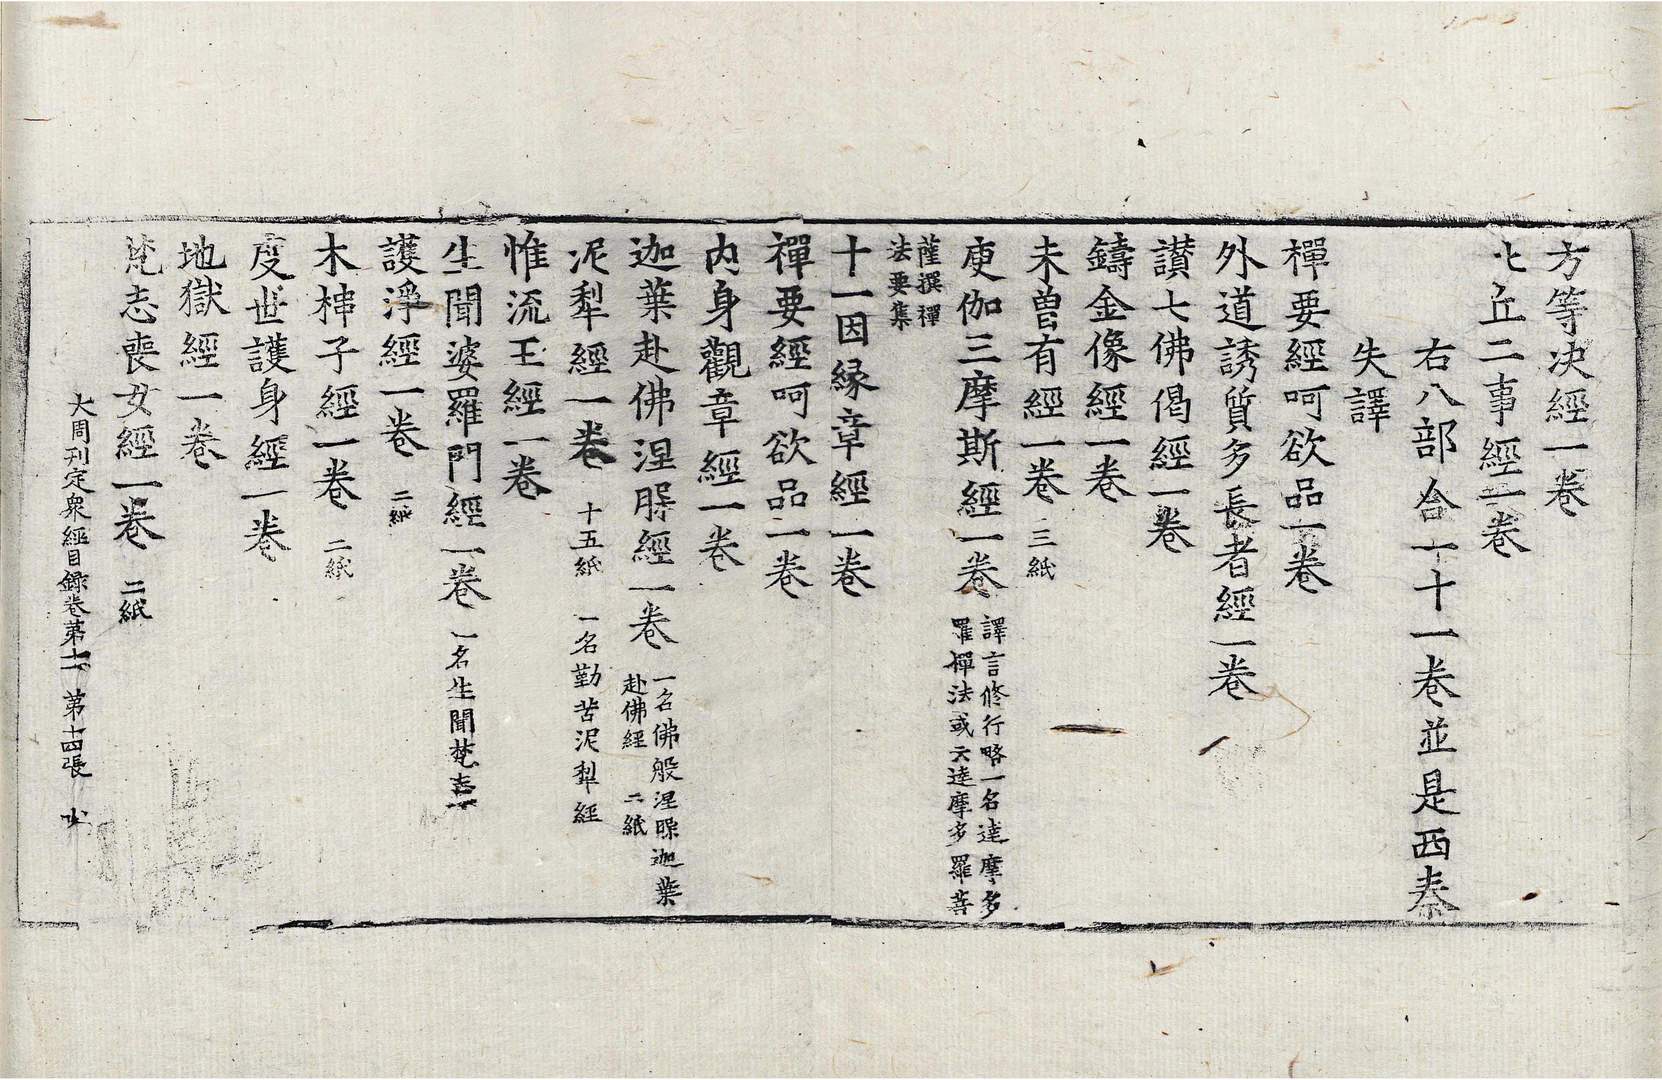 方等决經一卷
七丘二事經一卷
右八部合一十一卷並是西秦
失譯
禪要經呵欲品一卷
外道誘質多長者經一卷
讃七佛偈經一卷
鑄金像經一卷
未曽有經一卷 三紙
庾伽三摩斯經一卷 譯言修行略一名達摩多
羅禪法或云達摩多羅菩
薩撰禪
法要集
十一因縁章經一卷
禪要經呵欲品一卷
内身觀章經一卷
迦葉赴佛涅槃經一卷 一名佛般涅槃迦葉
赴佛經 二紙
泥犁經一卷 十五紙 一名勤苦泥犁經
惟流王經一卷
生聞婆羅門經一卷 一名生聞梵志
護淨經一卷 二紙
木槵子經一卷 二紙
度世護身經一卷
地獄經一卷
梵志喪女經一卷 二紙
大周刊定衆經目錄卷第十一 第十四張